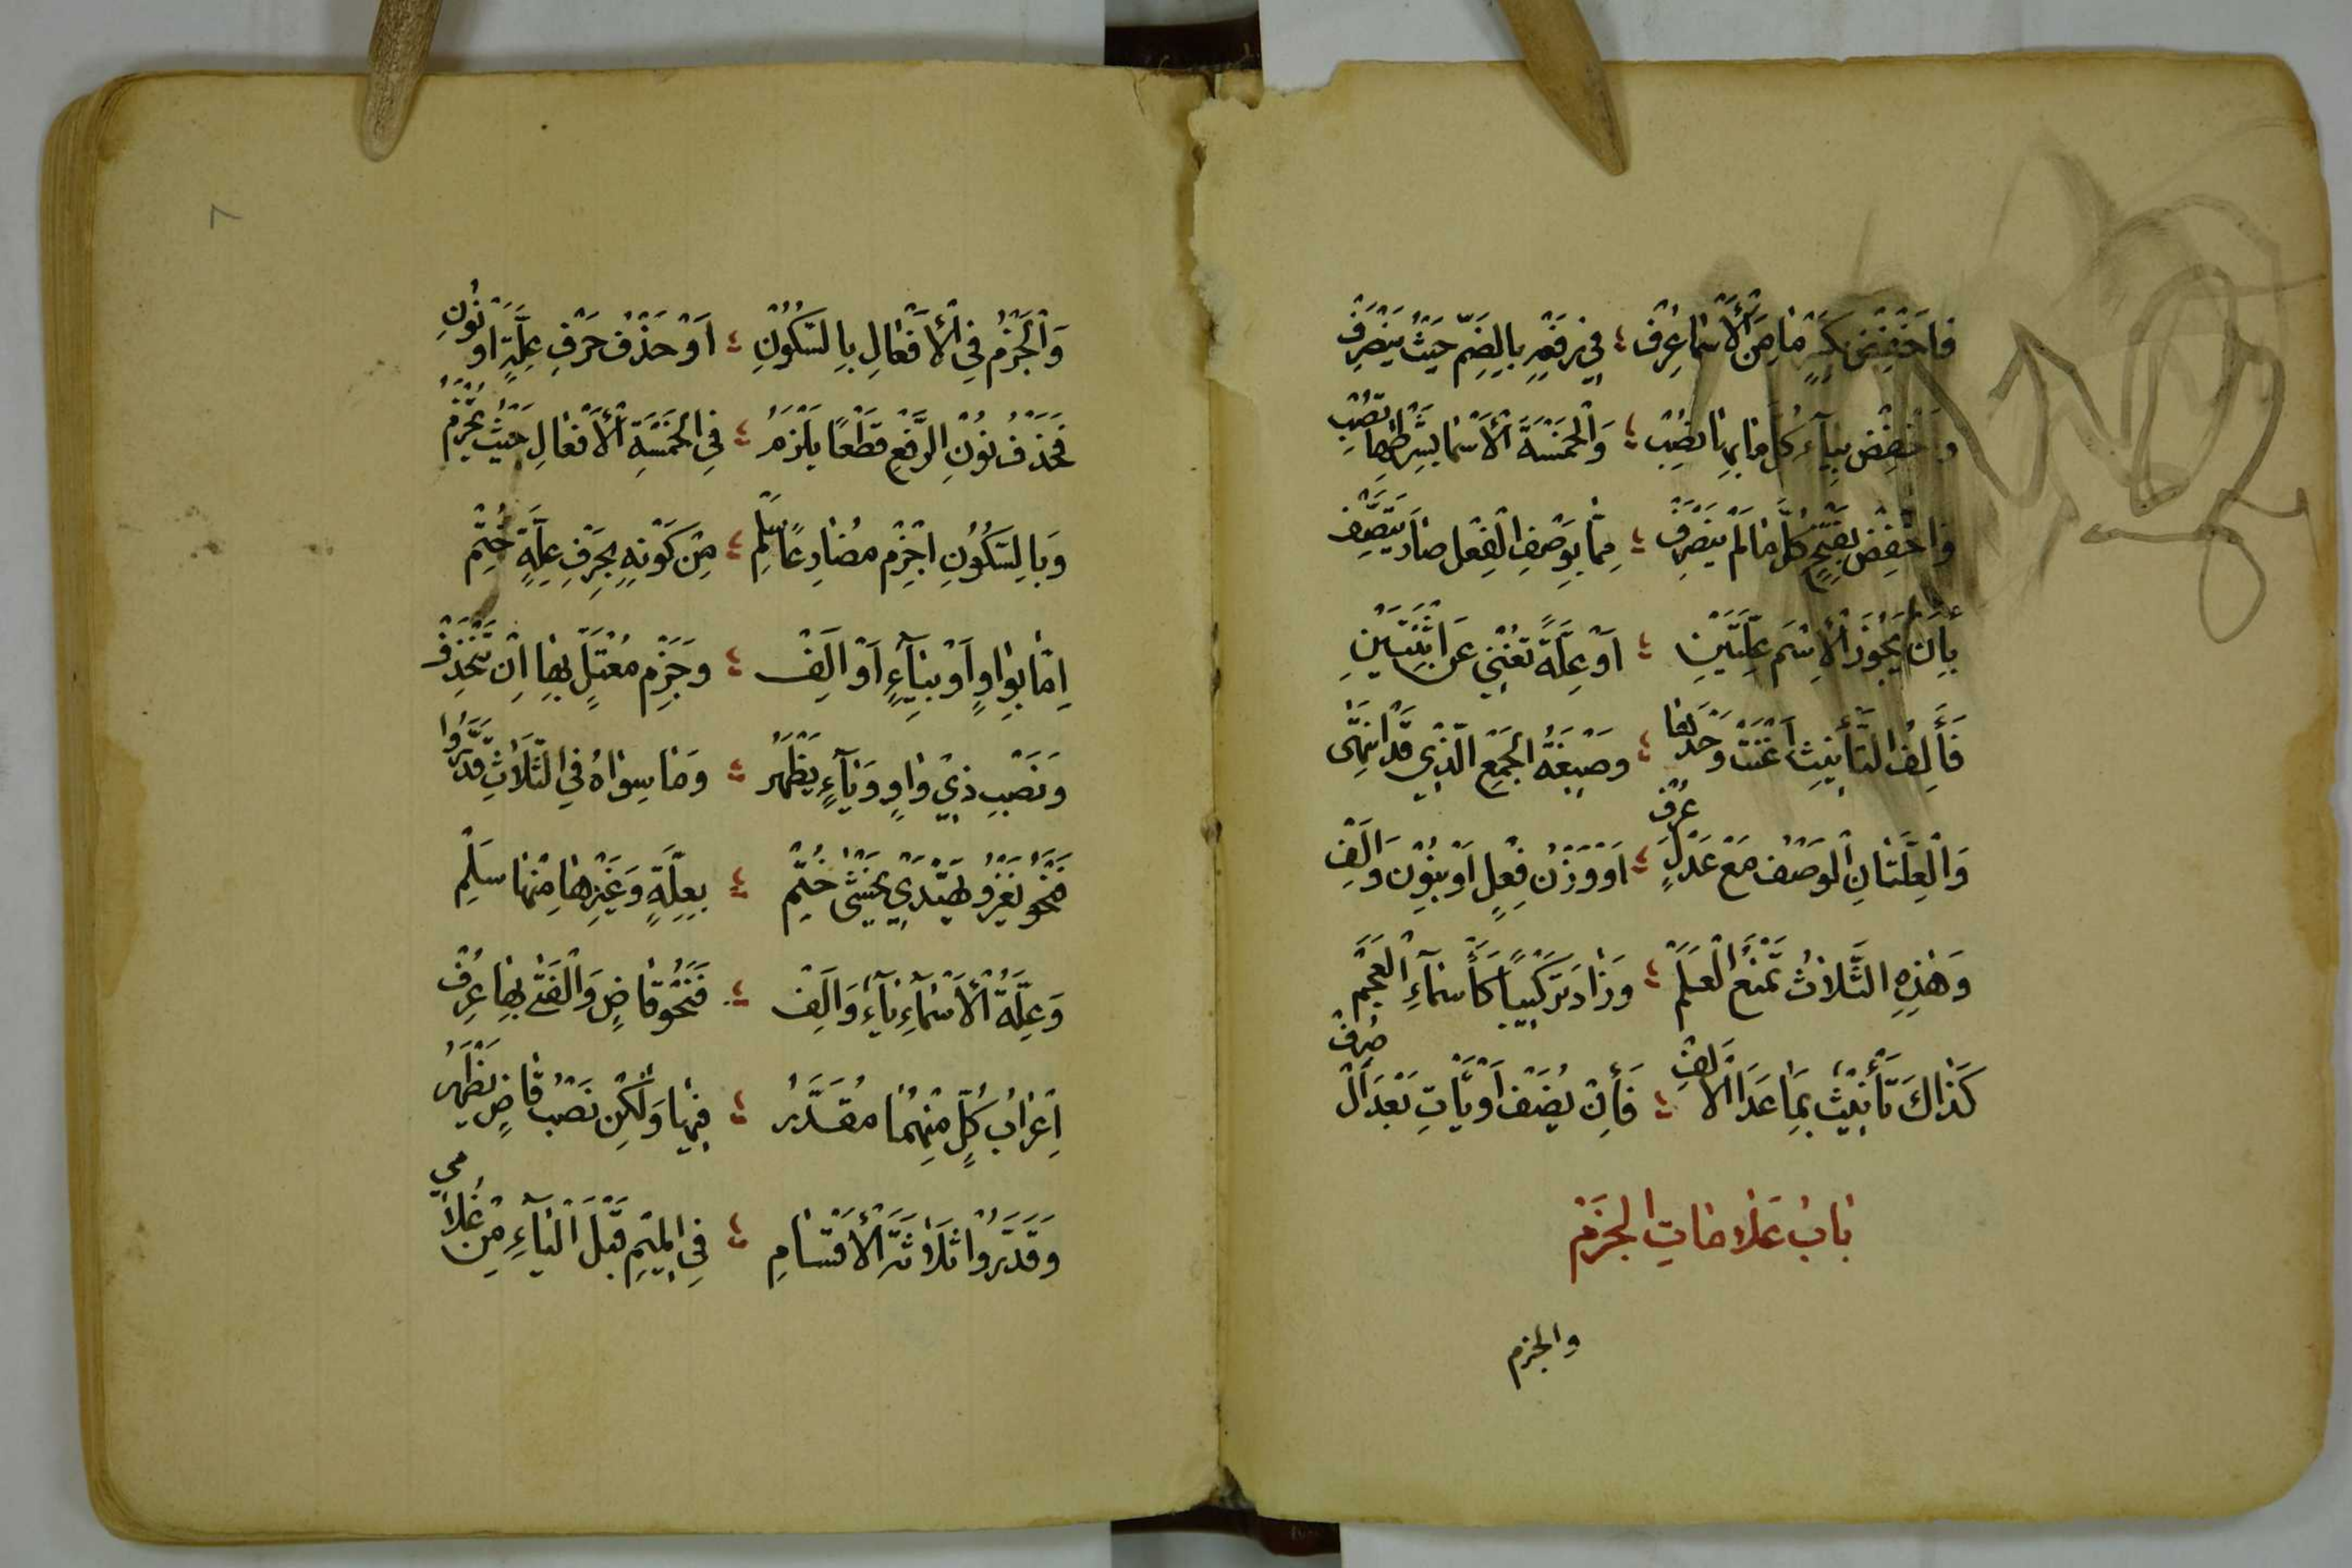 فَاخْفِضْ بِكَسْرٍ مَا مِنَ الْأَسْمَا عُرِفْ ؛ فِي رَفْعِهِ بِالضَّمِّ حَيْثُ يَنْصَرِفْ
وَاخْفِضْ بِيَاءٍ كُلَّ مَا بِهَا نُصِبْ ؛ وَالْخَمْسَةَ الْأَسْمَا بِشَرْطِهَا تُصِبْ
وَاخْفِضْ بِفَتْحٍ كُلَّ مَا لَمْ يَنْصَرِفْ ؛ مِمَّا بِوَصْفِ الْفِعْلِ صَارَ يَتَّصِفْ
بِأَنْ يَحُوزَ الْاِسْمُ عِلَّتَيْنِ ؛ أَوْ عِلَّةً تُغْنِي عَنِ اثْنَتَيْنِ
فَأَلِفُ التَّأْنِيثِ أَغْنَتْ وَحْدَهَا ؛ وَصِيغَةُ الْجَمْعِ الَّذِي قَدِ انْتَهَى
وَالْعِلَّتَانِ الْوَصْفُ مَعْ عَدْلٍ عُرِفْ ؛ أَوْ وَزْنُ فِعْلٍ أَوْ بِنُونٍ وَأَلِفْ
وَهَذِهِ الثَّلَاثُ تَمْنَعُ الْعَلَمْ ؛ وَزَادَ تَرْكِيبًا كَأَسْمَاءِ الْعَجَمْ
كَذَاكَ تَأْنِيثٌ بِمَا عَدَا الْأَلِفْ ؛ فَإِنْ يُضَفْ أَوْ يَأْتِ بَعْدَ أَلْ صُرِفْ
بَابُ عَلَامَاتِ الْجَزْمِ
والجزم
٨
وَالْجَزْمُ فِي الْأَفْعَالِ بِالسُّكُونِ ؛ أَوْ حَذْفُ حَرْفِ عِلَّةٍ أَوْ نُونِ
فَحَذْفُ نُونِ الرَّفْعِ قَطْعًا يَلْزَمُ ؛ فِي الْخَمْسَةِ الْأَفْعَالِ حَيْثُ تُجْزَمُ
وَبِالسُّكُونِ اجْزِمْ مُضَارِعًا سَلِمْ ؛ مِنْ كَوْنِهِ بِحَرْفِ عِلَّةٍ خُتِمْ
اِمَّا بِوَاوٍ أَوْ بِيَاءٍ أَوْ أَلِفْ ؛ وَجَزْمُ مُعْتَلٍّ بِهَا اَنْ تَنْحَذِفْ
وَنَصْبُ ذِي وَاوٍ وَيَاءٍ يَظْهَرُ ؛ وَمَا سِوَاهُ فِي الثَّلَاثِ قَدَّرُوا
فَنَحْوُ يَغْزُو يَهْتَدِي يَخْشَى خُتِمْ ؛ بِعِلَّةٍ وَغَيْرُهَا مِنْهَا سَلِمْ
وَعِلَّةُ الْأَسْمَاءِ يَاءٌ وَأَلِفْ ؛ فَنَحْوُ قَاضٍ وَالْفَتَى بِهَا عُرِفْ
اِعْرَابُ كُلٍّ مِنْهُمَا مُقَدَّرُ ؛ فِيهَا وَلَكِنْ نَصْبُ قَاضٍ يَظْهَرُ
وَقَدَّرُوا ثَلَاثَةَ الْأَقْسَامِ ؛ فِي الْمِيمِ قَبْلَ الْيَاءِ مِنْ غُلَامِي